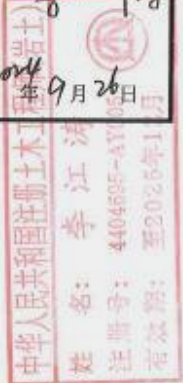 2024年9月26日
中华人民共和国注册土木工程师(岩土)
姓 名: 李江涛
注册号: 4404695-AY005
有效期: 至2025年12月